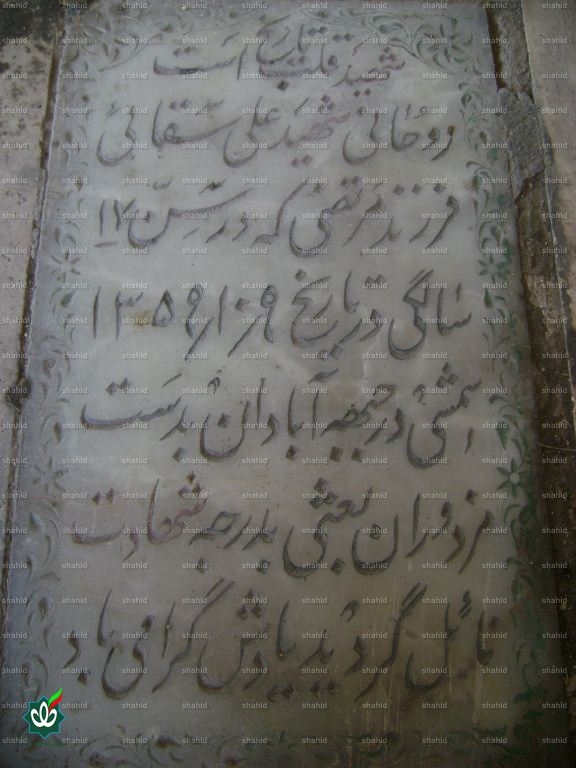 شهید قلب تاریخ است
روحانی شهید علی سقائی
فرزند مرتضی که در سن ۱۷
سالگی در تاریخ ۱۰٫۹٫۱۳۵۹
شمسی در جبهه آبادان بدست
مزدوران بعثی بدرجه شهادت
نائل گردید یادش گرامی باد
shahid